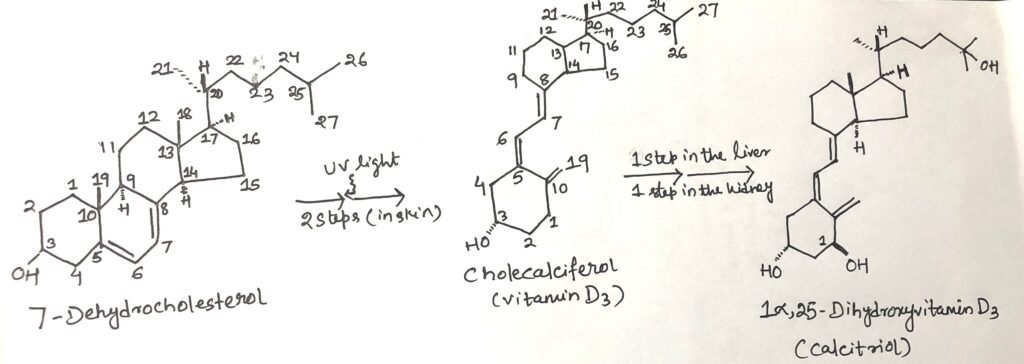 21 H 22 24 26
20 23 25
12 18 27
11 13 17 H 16
1 19 9 14 15
2 10 H 8 H
3 5 7
OH 4 6
7-Dehydrocholesterol
UV light
2 steps (in skin)
21 H 22 24 27
20 23 25
12 H 26
11 13 17 16
9 8 14 15
7
6
4 5 19
10
3 1
HO 2
Cholecalciferol
(vitamin D3)
1 step in the liver
1 step in the kidney
H
OH
H
H
1
HO OH
1α,25-Dihydroxyvitamin D3
(calcitriol)